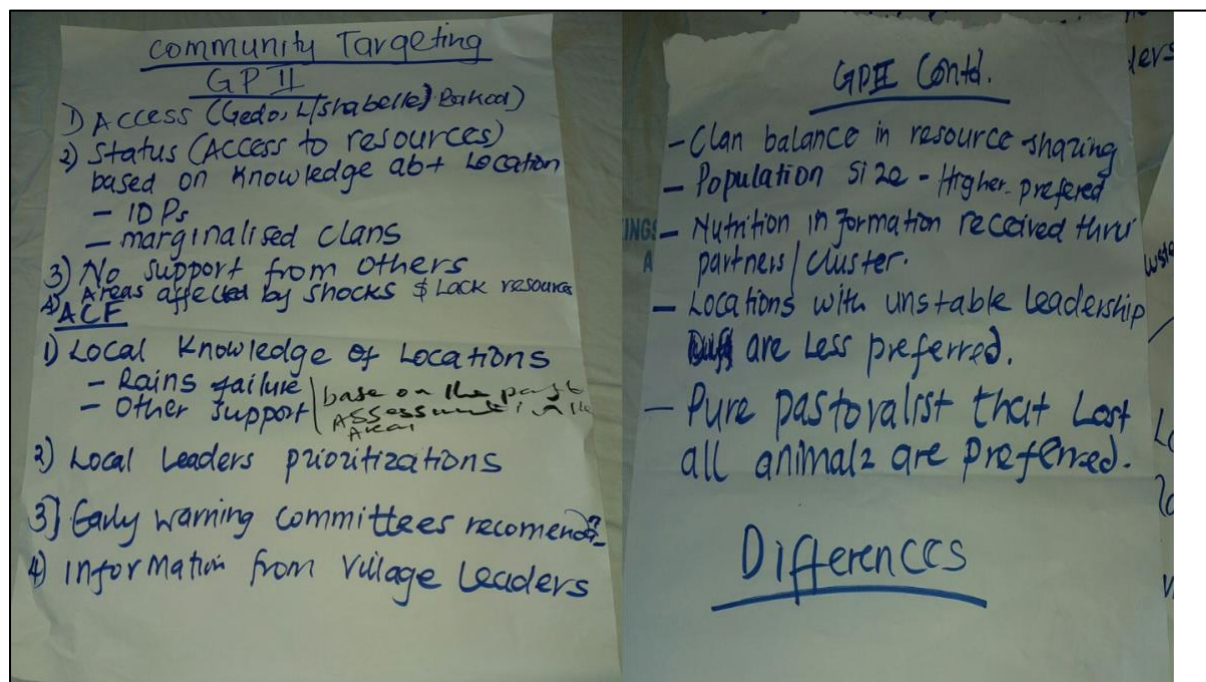 Community Targeting
GP II
1) Access (Gedo, L/Shabelle) Bakool)
2) Status (Access to resources)
based on Knowledge abt Location
- IDPs
- marginalised clans
3) No support from others
4) Areas affected by shocks & Lack resources
ACF
1) Local Knowledge of Locations
- Rains failure
- Other support
base on the past
Assessment in the
Area
2) Local Leaders prioritizations
3) Early warning committees recomendn
4) information from Village Leaders
GPII Contd.
- Clan balance in resource sharing
- Population size - Higher prefered
- Nutrition information received thru
partners/cluster.
- Locations with unstable leadership
are Less preferred.
- Pure pastoralist that Lost
all animalz are preferred.
Differences